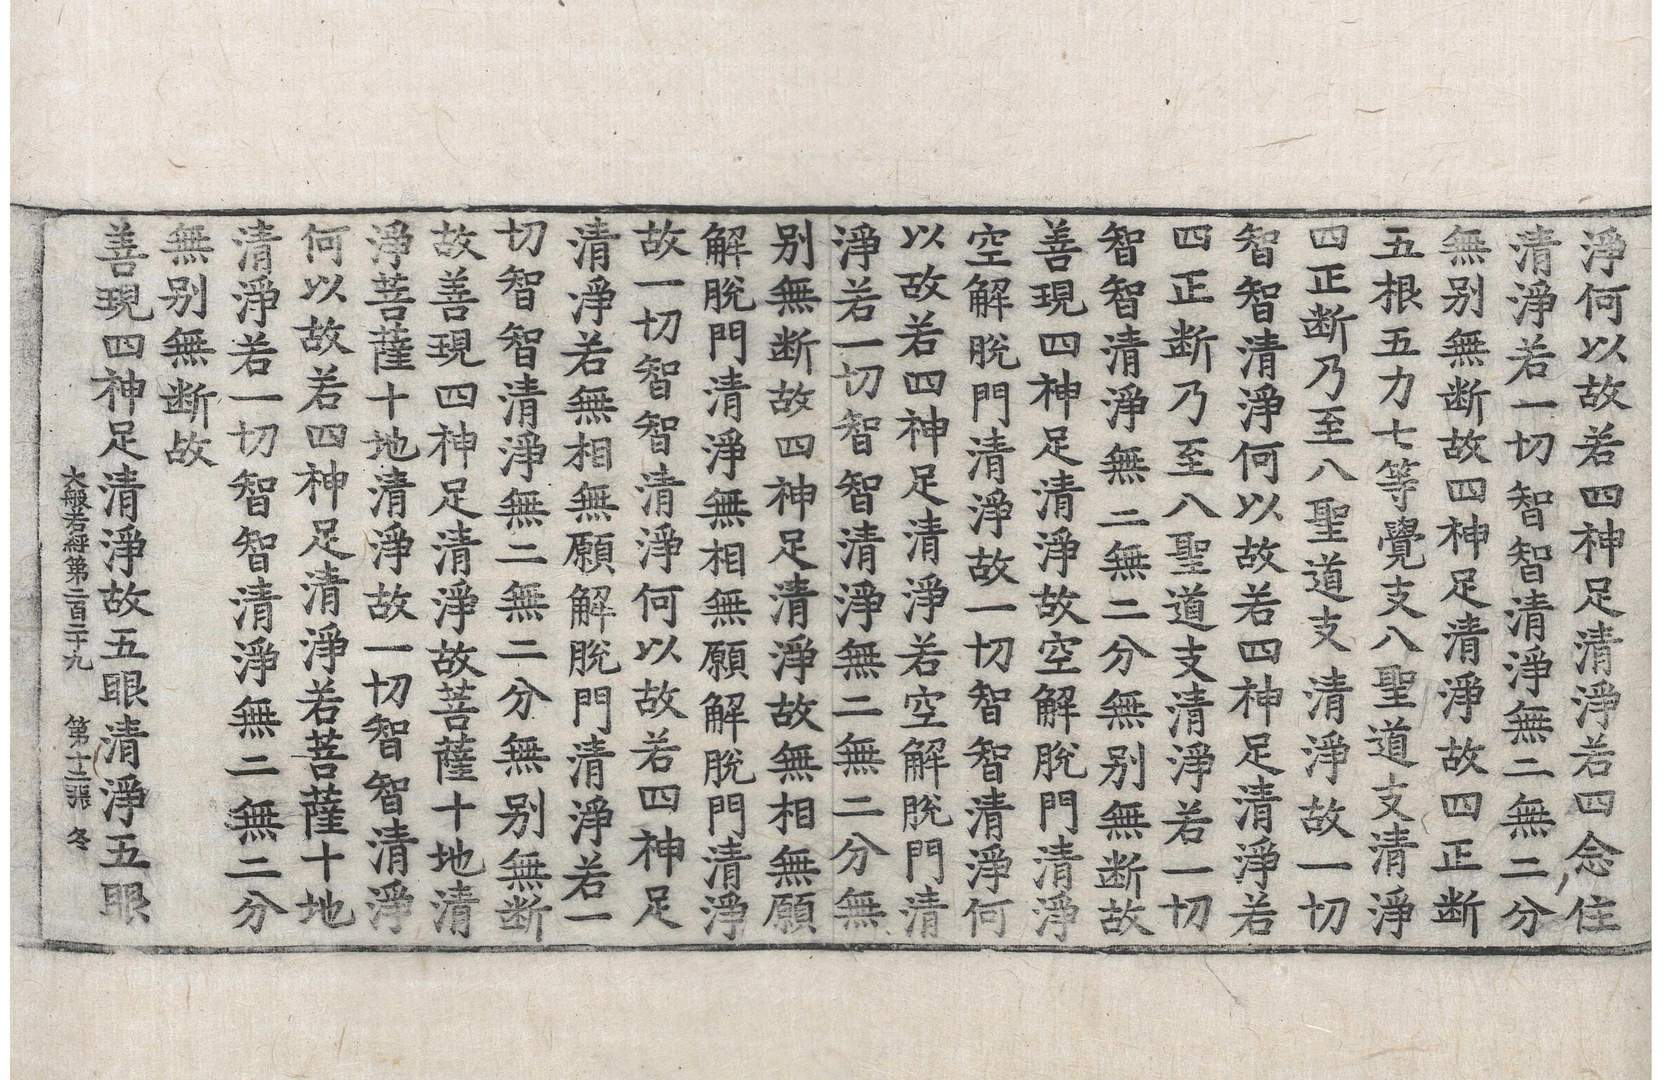 淨何以故若四神足清淨若四念住
清淨若一切智智清淨無二無二分
無别無断故四神足清淨故四正断
五根五力七等覺支八聖道支清淨
四正断乃至八聖道支清淨故一切
智智清淨何以故若四神足清淨若
四正断乃至八聖道支清淨若一切
智智清淨無二無二分無别無断故
善現四神足清淨故空解脫門清淨
空解脫門清淨故一切智智清淨何
以故若四神足清淨若空解脫門清
淨若一切智智清淨無二無二分無
别無断故四神足清淨故無相無願
解脫門清淨無相無願解脫門清淨
故一切智智清淨何以故若四神足
清淨若無相無願解脫門清淨若一
切智智清淨無二無二分無别無断
故善現四神足清淨故菩薩十地清
淨菩薩十地清淨故一切智智清淨
何以故若四神足清淨若菩薩十地
清淨若一切智智清淨無二無二分
無别無断故
善現四神足清淨故五眼清淨五眼
大般若經第二百二十九 第十二張 冬